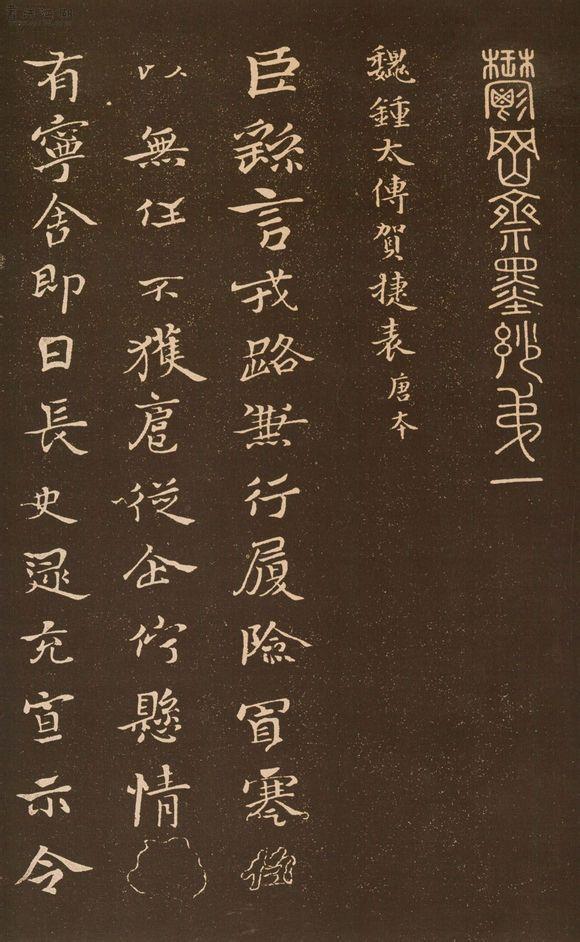 鬱岡齋墨玅弟一
魏鍾太傅賀捷表 唐本
臣繇言戎路兼行履險冒寒
以無任不獲扈從企佇懸情
有寧舍即日長史逯充宣示令